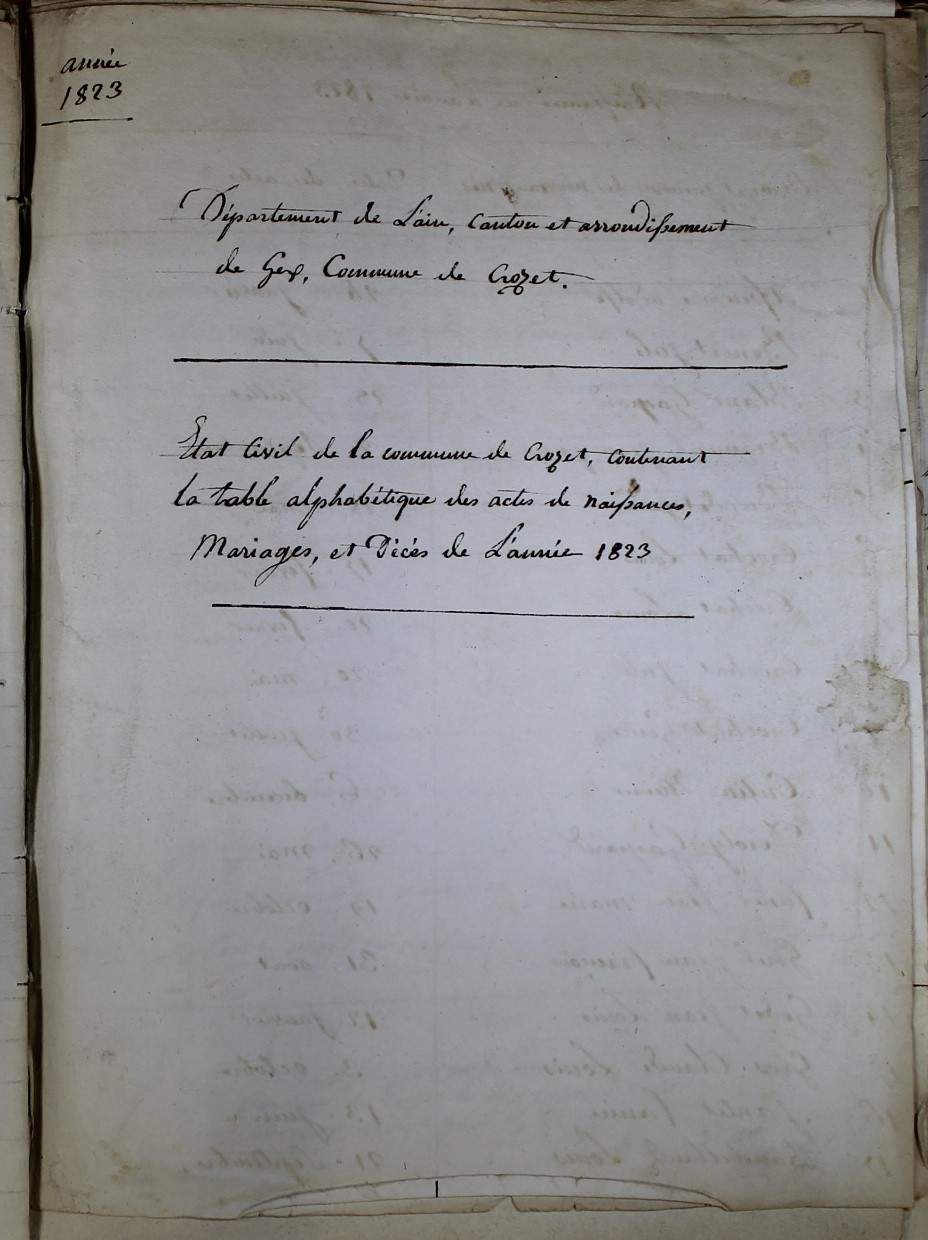 année
1823
Département de L'ain, Canton et arrondissement
de Gex, Commune de Crozet.
Etat Civil de la commune de Crozet, contenant
la table alphabétique des actes de naissances,
Mariages, et Décés de L'année 1823